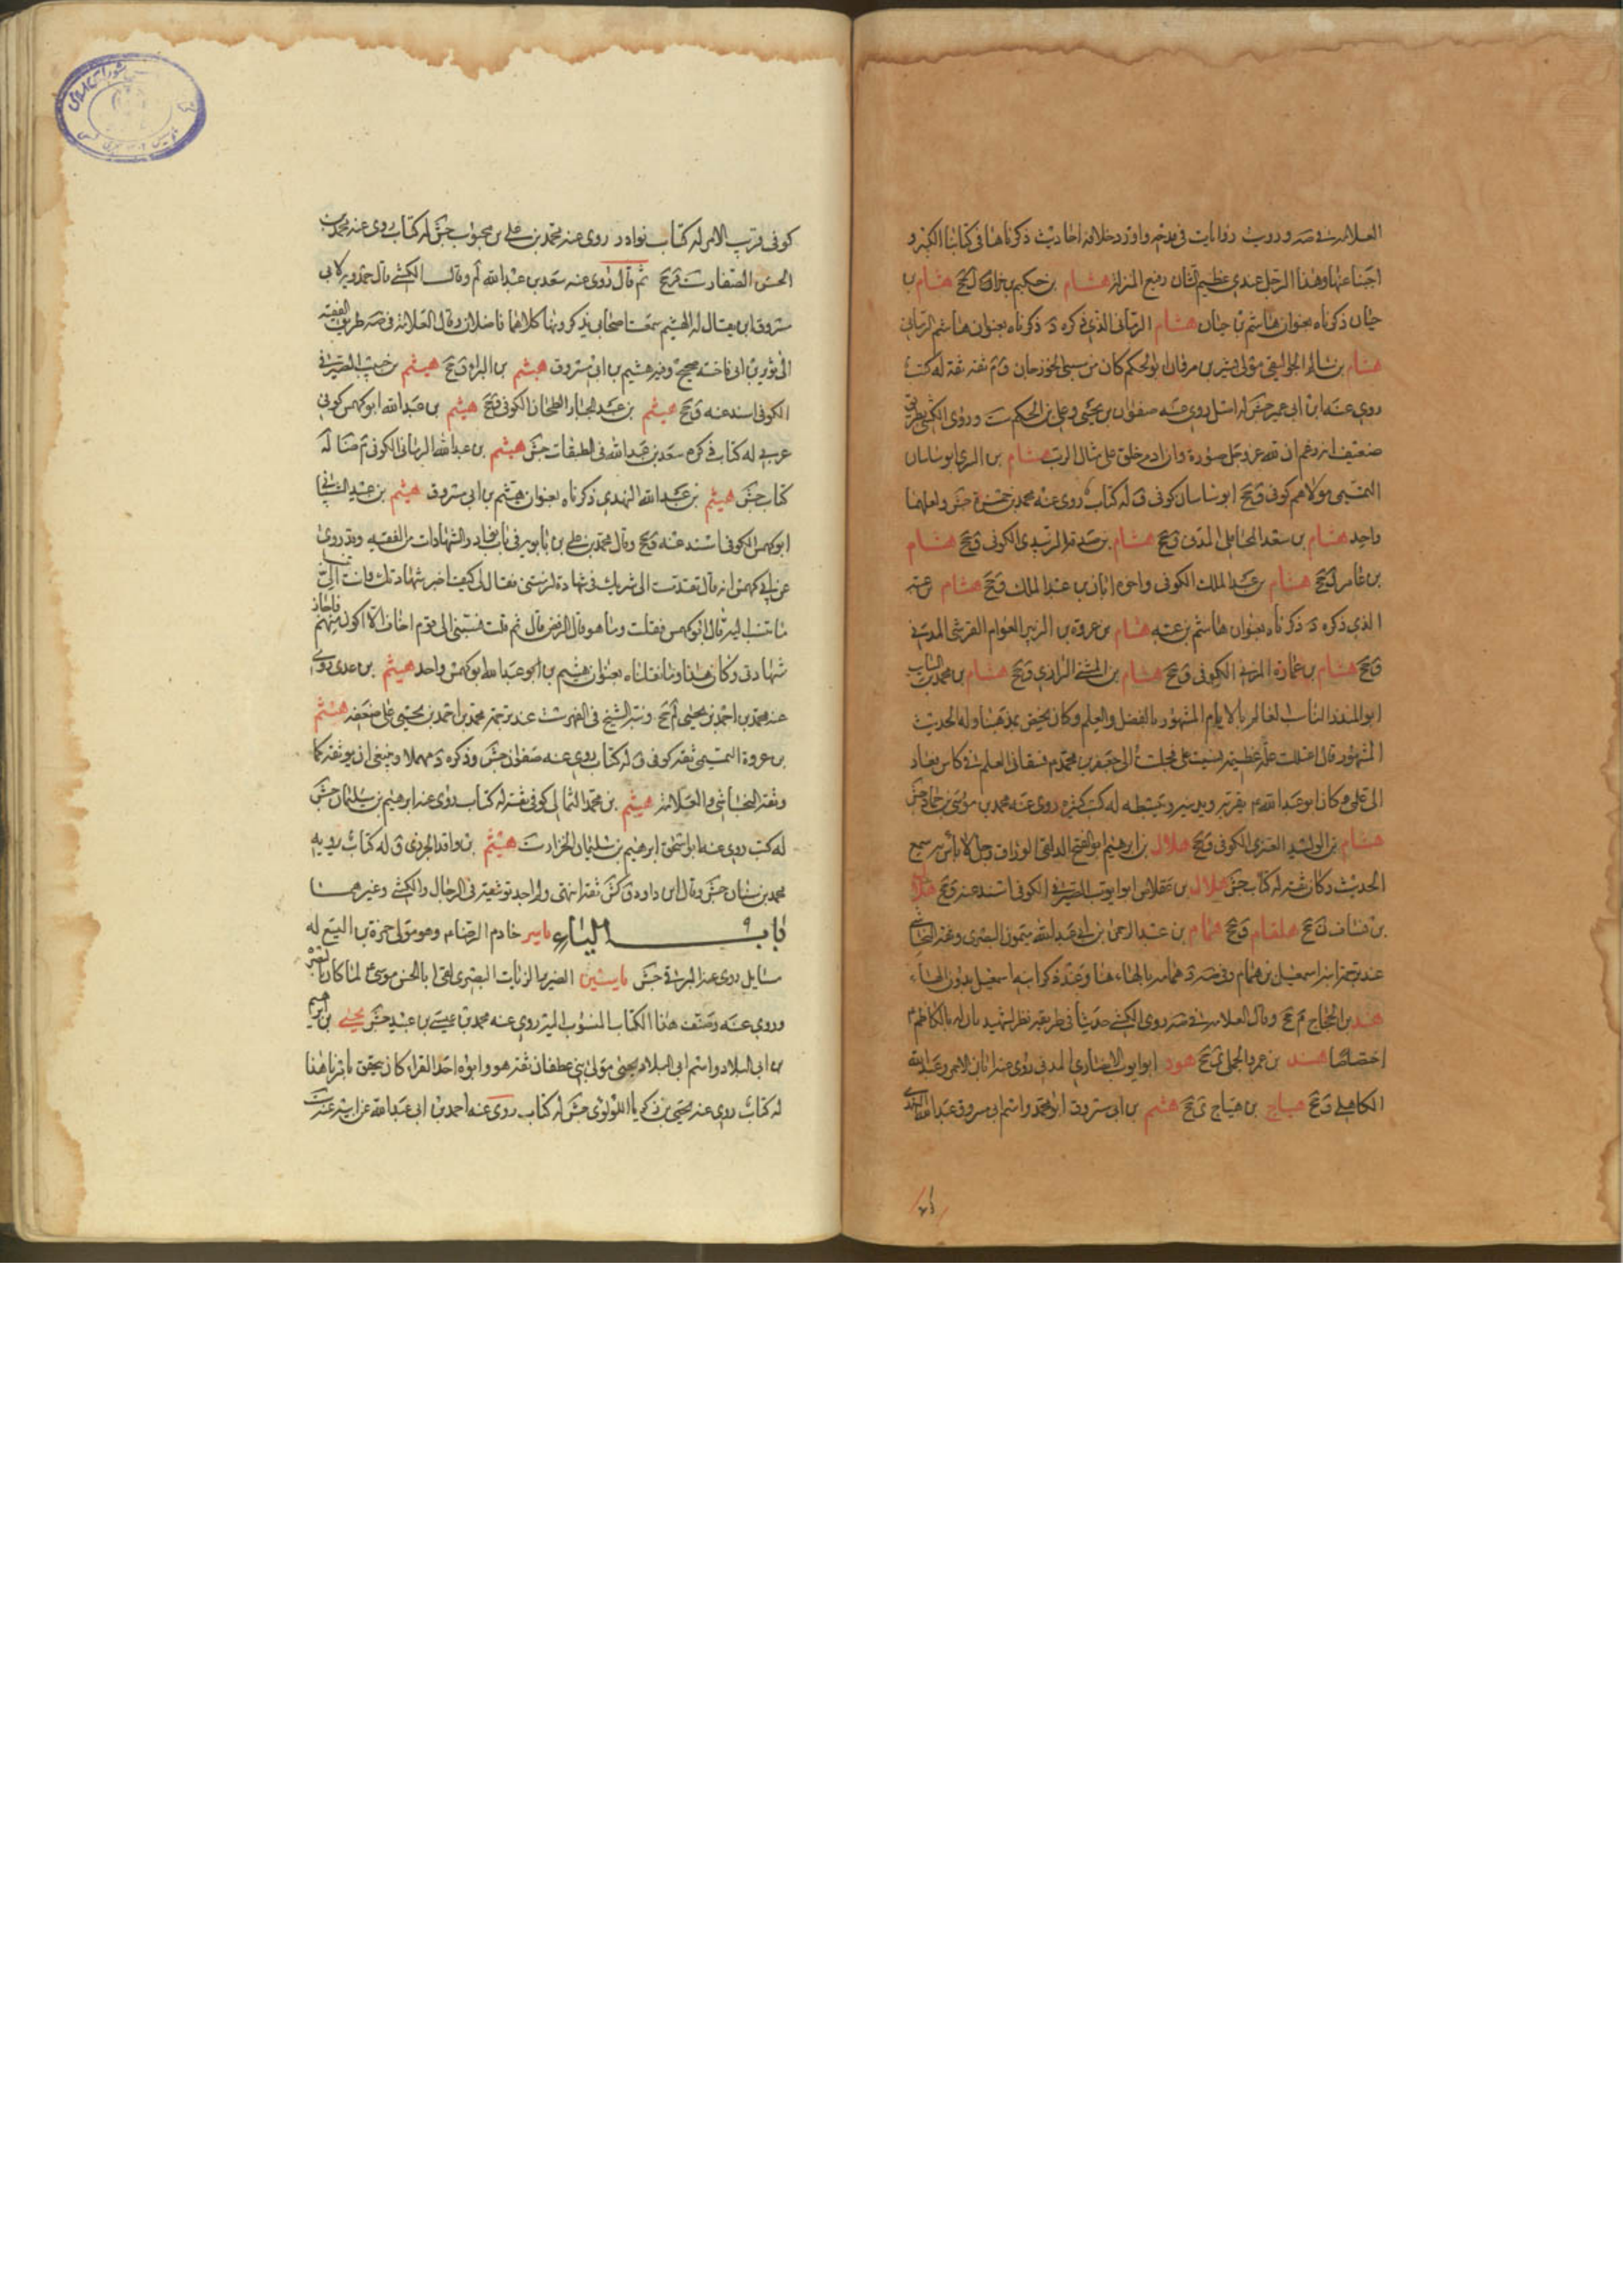 العلامة في صه وروت روايات في مدحه واورد خلافه احاديث ذكرناها في كتابنا الكبير و
اجبنا عنها وهذا الرجل عندي عظيم الشان رفيع المنزلة هشام بن حكيم بن حزام ل جخ هشام بن
حيان ذكرناه بعنوان هاشم بن حيان هشام الرماني الذي ذكره د ذكرناه بعنوان هاشم الرماني
هشام بن سالم الجواليقي مولى بشر بن مروان ابو الحكم كان من سبي الجوزجان ق م ثقة ثقة له كتاب
روى عنه ابن ابي عمير جش له اصل روى عنه صفوان بن يحيى وعلي بن الحكم ست وروى الكشي بطريق
ضعيف انه زعم ان لله عز وجل صورة وان ادم خلق على مثال الرب هشام بن السري ابو ساسان
التميمي مولاهم كوفي ق جخ ابو ساسان كوفي ق له كتاب روى عنه محمد بن حمزة جش ولعلهما
واحد هشام بن سعد المحاملي المدني ق جخ هشام بن صدقة الرشيدي الكوفي ق جخ هشام
بن عامر ل جخ هشام بن عبد الملك الكوفي واخوه ابان بن عبد الملك ق جخ هشام بن عتبه
الذي ذكره د ذكرناه بعنوان هاشم بن عتبه هشام بن عروة بن الزبير العوام القرشي المدني
ق جخ هشام بن عمارة المزني الكوفي ق جخ هشام بن المثنى الرازي ق جخ هشام بن محمد بن السائب
ابو المنذر الناسب العالم بالايام المشهور بالفضل والعلم وكان يختص بمذهبنا وله الحديث
المشهور قال اعتللت علة عظيمة نسيت علمي فجلست الى جعفر بن محمد م فسقاني العلم في كاس فعاد
الى علمي وكان ابو عبد الله م يقربه ويدنيه ويبسطه له كتب كثيرة روى عنه محمد بن موسى بن حماد جش
هشام بن الوليد العنزي الكوفي ق جخ هلال بن ابرهيم ابو الفتح الدلفي الوراق رجل لا باس به سمع
الحديث وكان ثقة له كتاب جش هلال بن مقلاص ابو ايوب الصيرفي الكوفي اسند عنه ق جخ هلال
بن يساف ل جخ هلقام ق جخ همام بن عبد الرحمن بن ابي عبد الله ميمون البصري وثقه النجاشي
عند ترجمة ابنه اسمعيل بن همام وفي صه د همامه بالهاء هنا وعند ذكر ابنه اسمعيل بدون الهاء
هند بن الحجاج م جخ وقال العلامة في صه روى الكشي حديثا في طريقه نظر يشهد بان له بالكاظم م
اختصاصا هند بن عمرو الجملي ي جخ هود ابو ايوب الانصاري المدني روى عنه ابان الاحمر وعبد الله
الكاهلي ق جخ هياج بن هياج ق جخ هيثم بن ابي مسروق ابو محمد واسم ابي مسروق عبد الله النهدي
كوفي قريب الامر له كتاب نوادر روى عنه محمد بن علي بن محبوب جش له كتاب روى عنه محمد بن
الحسن الصفار ست قر جخ ثم قال روى عنه سعد بن عبد الله لم وقال الكشي قال حمدويه لابي
مسروق ابن يقال له الهيثم سمعت اصحابي يذكرونهما كلاهما فاضلان وقال العلامة في صه طريق الفقيه
الى ثوير بن ابي فاخته صحيح وفيه هيثم بن ابي مسروق هيثم بن البراء ق جخ هيثم بن حبيب الصيرفي
الكوفي اسند عنه ق جخ هيثم بن عبد الجبار الطحان الكوفي ق جخ هيثم بن عبد الله ابو كهمس كوفي
عربي له كتاب ذكره سعد بن عبد الله في الطبقات جش هيثم بن عبد الله الرماني الكوفي م ضا له
كتاب جش هيثم بن عبد الله النهدي ذكرناه بعنوان هيثم بن ابي مسروق هيثم بن عبيد الشيباني
ابو كهمس الكوفي اسند عنه ق جخ وقال محمد بن علي بن بابويه في باب نوادر الشهادات من الفقيه وقد روى
عن ابي كهمس انه قال تقدمت الى شريك في شهادة لزمتني فقال لي كيف اجيز شهادتك وانت تنسب الى
ما تنسب اليه قال ابو كهمس فقلت وما هو قال الرفض قال ثم قلت نسبتني الى قوم اخاف الا اكون منهم فاجاز
شهادتي وكان هذا وما نقلناه بعنوان هيثم بن ابو عبد الله ابو كهمس واحد هيثم بن عدي روى
عنه محمد بن احمد بن يحيى لم جخ ونبه الشيخ في الفهرست عند ترجمة محمد بن احمد بن يحيى على ضعفه هيثم
بن عروة التميمي ثقة كوفي ق له كتاب روى عنه صفوان جش وذكره د مهملا وينبغي ان يوثقه كما
وثقه النجاشي والعلامة هيثم بن محمد الثمالي كوفي ثقة له كتاب روى عنه ابرهيم بن سليمان جش
له كتب روى عنه ابو اسحق ابرهيم بن سليمان الخزاز ست هيثم بن واقد الجزري ق له كتاب يرويه
محمد بن سنان جش وقال ابن داود ق كش ثقة انتهى ولم اجد توثيقه في الرجال والكشي وغيرهما
باب الياء ياسر خادم الرضا م وهو مولى حمزة بن اليسع له
مسايل روى عنه البرقي جش ياسين الضرير الزيات البصري لقى ابا الحسن موسى م لما كان بالبصرة
وروى عنه وصنف هذا الكتاب المنسوب اليه روى عنه محمد بن عيسى بن عبيد جش يحيى بن ابرهيم
بن ابي البلاد واسم ابي البلاد يحيى مولى بني غطفان ثقة هو وابوه احد القراء كان يتحقق بامرنا هذا
له كتاب روى عنه يحيى بن زكريا اللؤلؤي جش له كتاب روى عنه احمد بن ابي عبد الله عن ابيه عنه ست